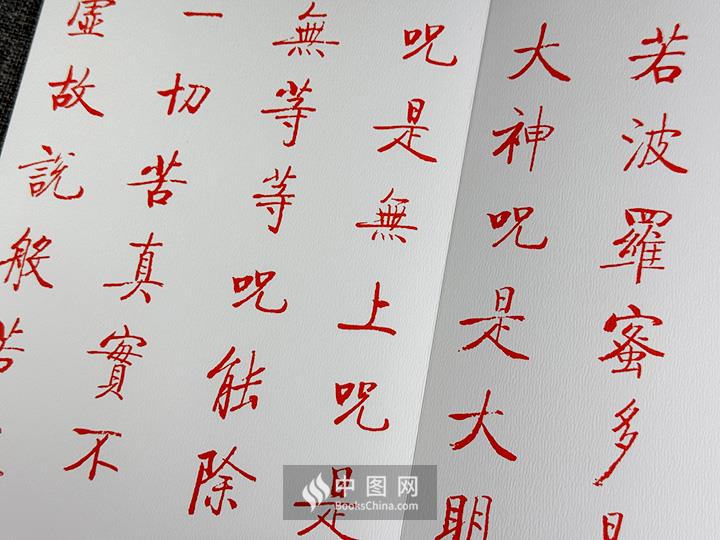 若波羅蜜多是
大神呪是大明
呪是無上呪是
無等等呪能除
一切苦真實不
虛故說般若
中图网
BooksChina.com